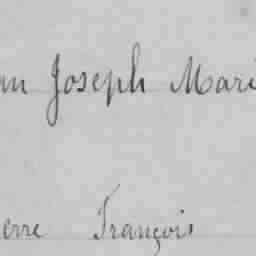 an Joseph Mari
erre François